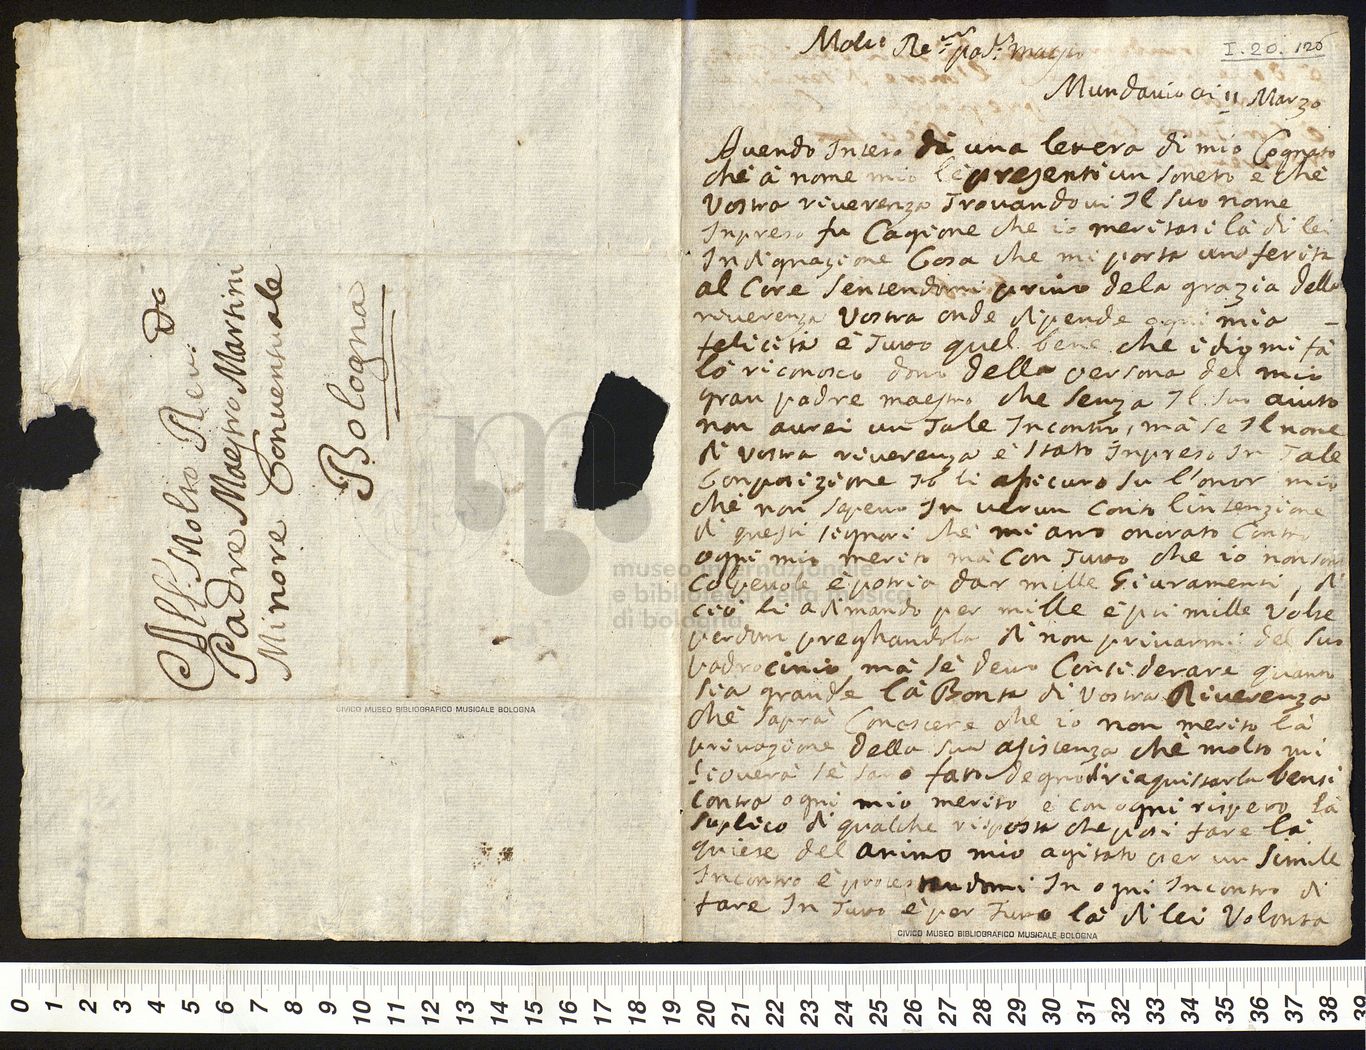 All: Molto Rev: Do
Padre Maestro Martini
Minore Conventuale
Bologna
CIVICO MUSEO BIBLIOGRAFICO MUSICALE BOLOGNA
I. 20. 126
Molt:
Mundavio di 11 Marzo
Avendo Inteso da una letera di mio Cognato
che à nome mio le presenti un soneto e che
Vostra riverenza Trovandovi Il suo nome
Inpreso fu Cagione che io meritasi la di lei
Indignazione Cosa che mi porta una ferita
al Core sentendomi privo dela grazia della
riverenza Vostra onde dipende ogni mia
felicita è Tuto quel bene che idio mi fà
lo riconosco dono della persona del mio
gran padre maestro che senza Il suo aiuto
non avrei un Tale Incontro, mà se Il nome
di Vostra riverenza è stato Inpreso In Tale
Conposizione Io li asicuro su l'onor mio
chè non sapevo In verun conto l'intenzione
di questi signori chè mi ano onorato Contro
ogni mio merito mà con Tuto che io non son
Colpevole è potria dar mille Giuramenti, di
ciò li adimando per mille e più mille Volte
perdon preghandola di non privarmi del suo
padrocinio mà se devo Considerare quanto
sia grande la Bonta di Vostra Riverenza
chè saprà Conoscere che io non merito la
privazione della sua asistenza chè molto mi
se sarò fato degno di riaquistarla bensi
Contro ogni mio merito e con ogni rispeto la
suplico di qualche risposta che posi fare la
quiete del animo mio agitato per un simile
Incontro è protestandomi In ogni Incontro di
fare In Tuto è per Tuto la di lei Volonta
CIVICO MUSEO BIBLIOGRAFICO MUSICALE BOLOGNA
museo internazionale
e biblioteca della musica
di bologna
0 1 2 3 4 5 6 7 8 9 10 11 12 13 14 15 16 17 18 19 20 21 22 23 24 25 26 27 28 29 30 31 32 33 34 35 36 37 38 39